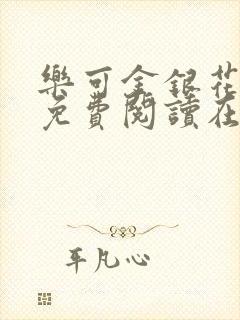 樂可金銀花
免費閱讀在
平凡心